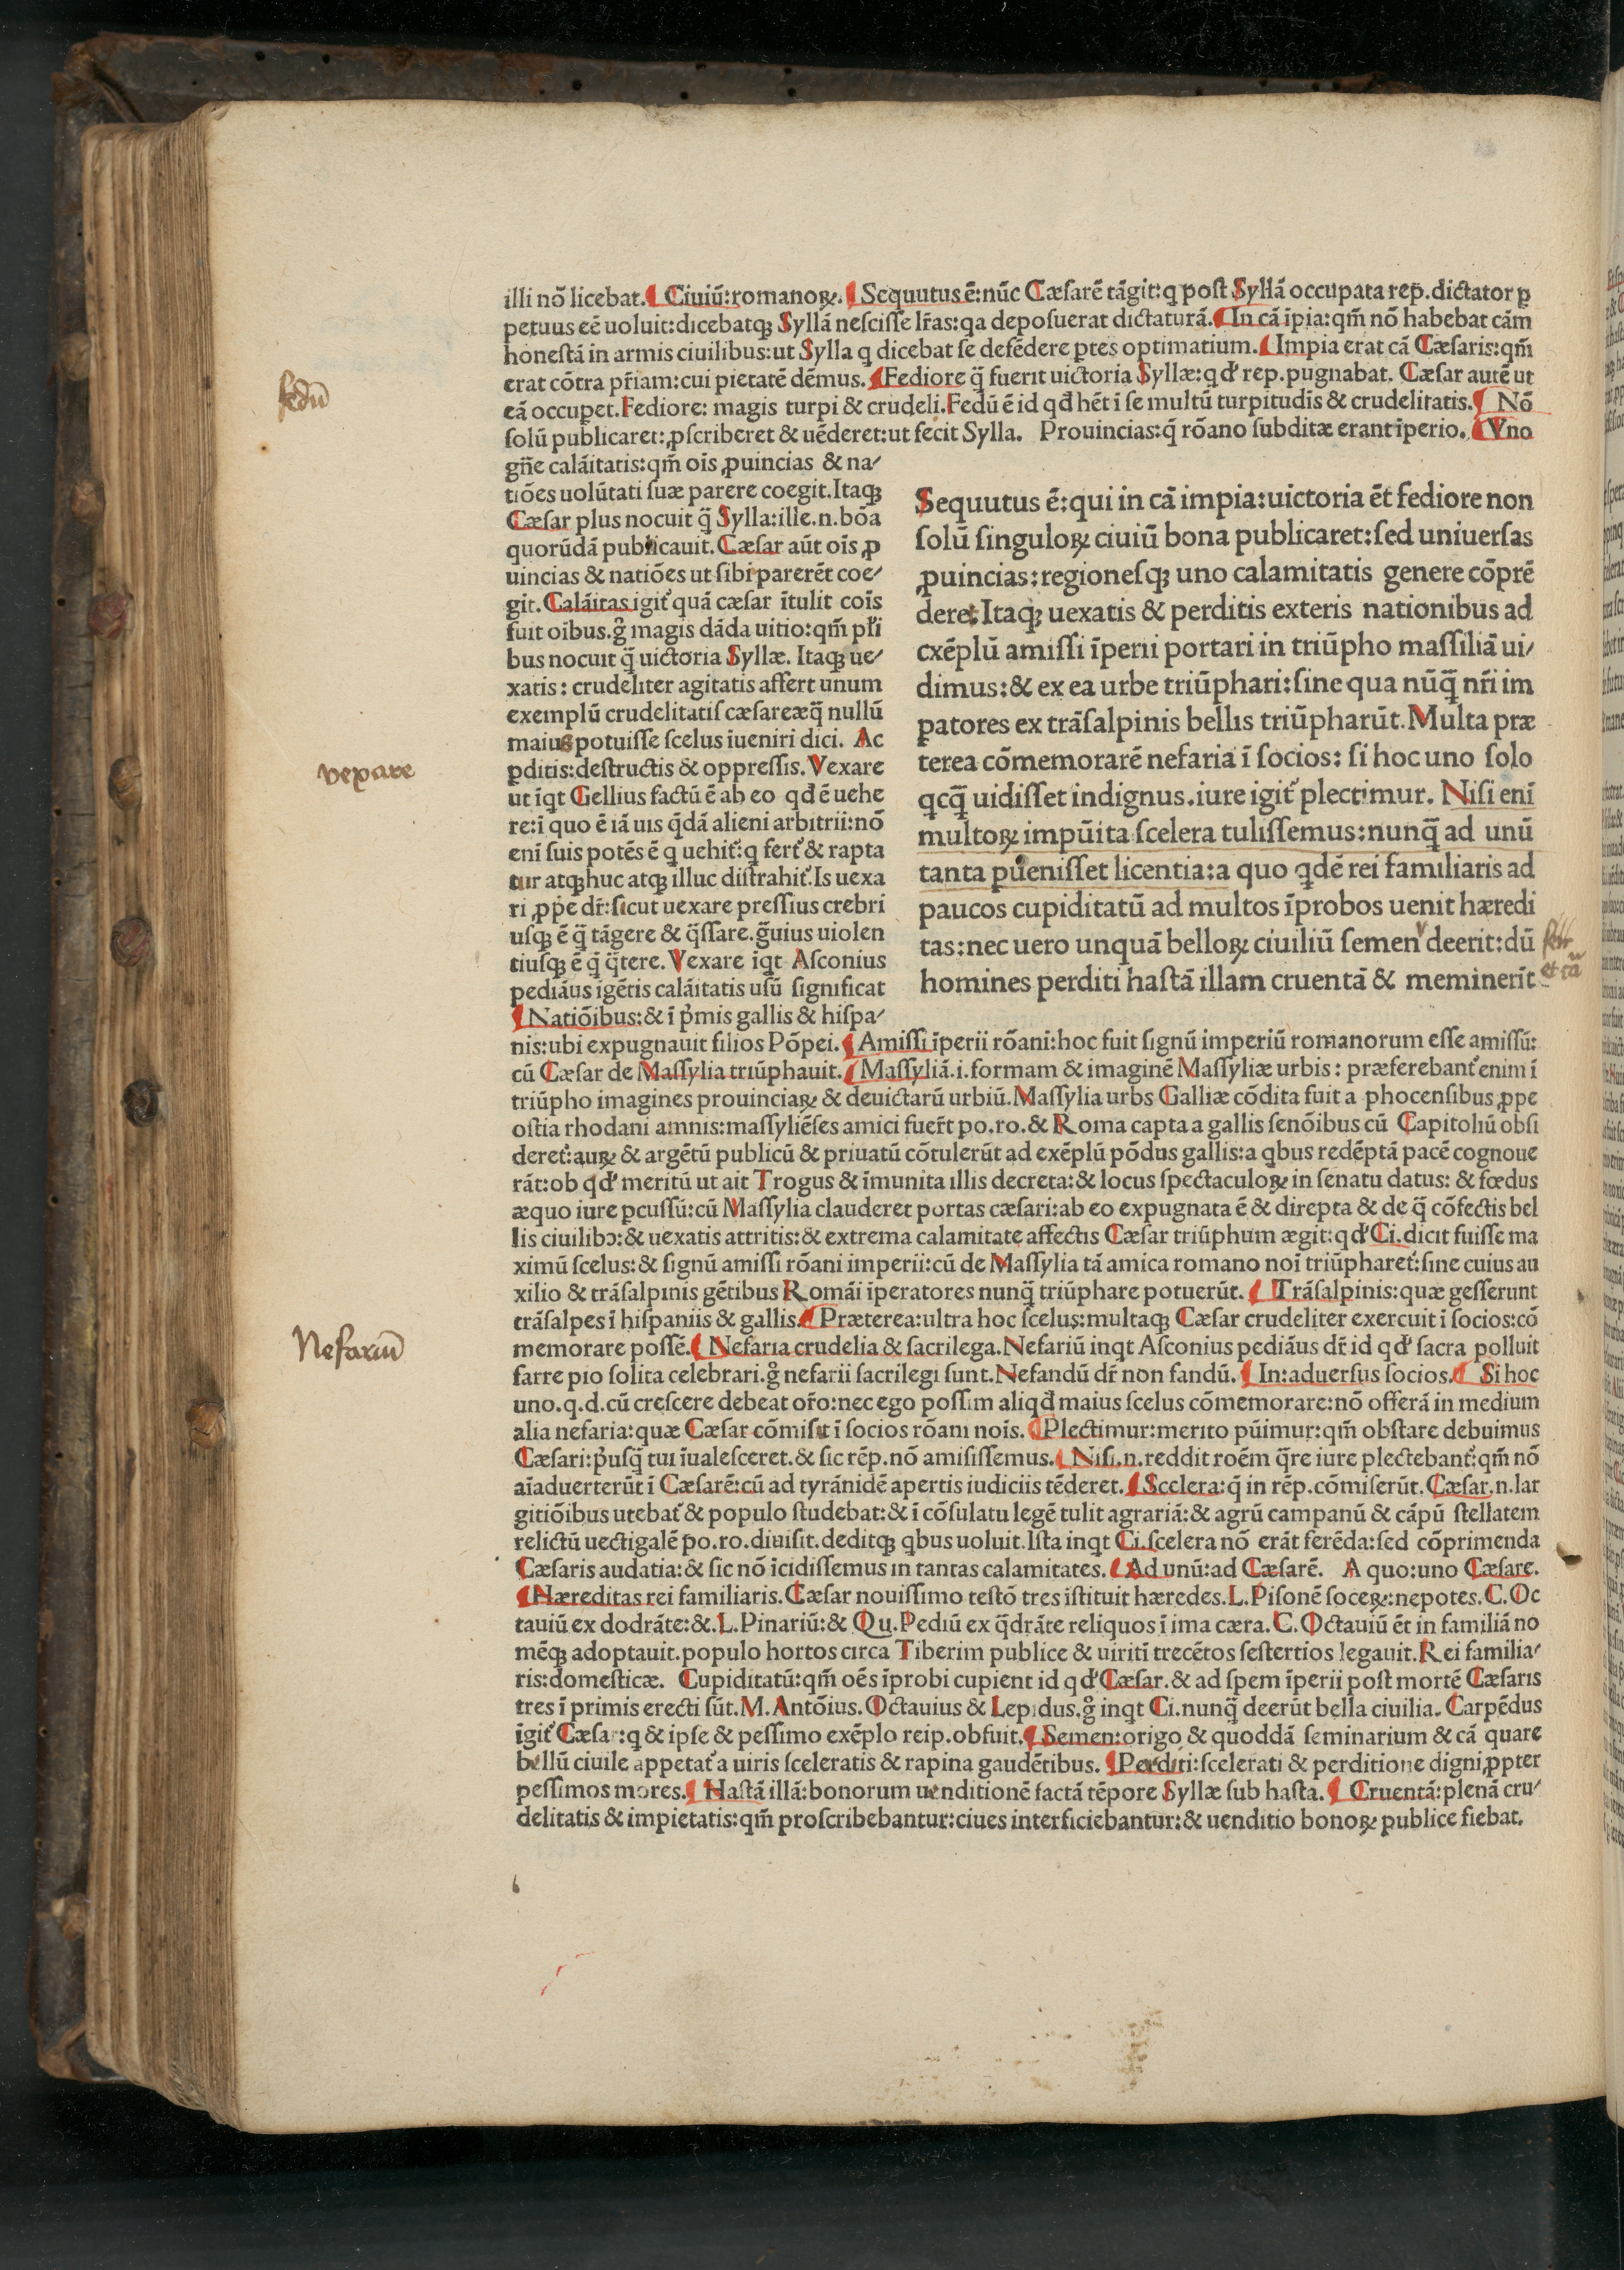 illi nō licebat. ¶ Ciuiū:romanoꝝ. ¶ Sequutus ē:nūc Cæſarē tāgit:q poſt Syllā occupata rep̄.dictator ꝑ
petuus eē uoluit:dicebatqꝫ Syllā neſciſſe lr̄as:qa depoſuerat dictaturā. ¶ In cā īpia:qm̄ nō habebat cām
honeſtā in armis ciuilibus:ut Sylla q dicebat ſe defēdere ꝑtes optimatium. ¶ Impia erat cā Cæſaris:qm̄
erat cōtra pr̄iam:cui pietatē dēmus. ¶ Fediore q̄ fuerit uictoria Syllæ:qđ rep.pugnabat. Cæſar autē ut
eā occupet.Fediore: magis turpi & crudeli.Fedū ē id qđ hēt ī ſe multū turpitudīs & crudelitatis. ¶ Nō
ſolū publicaret:ꝓſcriberet & uēderet:ut fecit Sylla. Prouincias:q̄ rōano ſubditæ erant īperio. ¶ Vno
gn̄e calāitatis:qm̄ oīs ꝓuincias & na/
tiōes uolūtati ſuæ parere coegit.Itaqꝫ
Cæſar plus nocuit q̄ Sylla:ille.n.bōa
quorūdā publicauit.Cæſar aūt oīs ꝓ
uincias & natiōes ut ſibi parerēt coe/
git. Calāitas igit̉ quā cæſar ītulit coīs
fuit oībus.g̊ magis dāda uitio:qm̄ pl̄i
bus nocuit q̄ uictoria Syllæ. Itaqꝫ ue/
xatis: crudeliter agitatis affert unum
exemplū crudelitatiſ cæſareæq̄ nullū
maius potuiſſe ſcelus īueniri dici. Ac
ꝑditis:deſtructis & oppreſſis. Vexare
ut īqt Gellius factū ē ab eo qđ ē uehe
re:ī quo ē iā uis q̄dā alieni arbitrii:nō
enī ſuis potēs ē q uehit̉:q fert̉ & rapta
tur atqꝫ huc atqꝫ illuc diſtrahit̉.Is uexa
ri ꝓpe dr̄:ſicut uexare preſſius crebri
uſqꝫ ē q̄ tāgere & q̄ſſare.g̊uius uiolen
tiuſqꝫ ē q̄ q̄tere. Vexare īqt Aſconius
pediāus īgētis calāitatis uſū ſignificat
¶ Natiōibus:& ī p̉mis gallis & hiſpa/
Sequutus ē:qui in cā impia:uictoria ēt fediore non
ſolū ſinguloꝝ ciuiū bona publicaret:ſed uniuerſas
ꝓuincias:regioneſqꝫ uno calamitatis genere cōprē
deret Itaqꝫ uexatis & perditis exteris nationibus ad
exēplū amiſſi īperii portari in triūpho maſſiliā ui/
dimus:& ex ea urbe triūphari:ſine qua nūq̄ nr̄i im
ꝑatores ex trāſalpinis bellis triūpharūt.Multa præ
terea cōmemorarē nefaria ī ſocios: ſi hoc uno ſolo
qcq̄ uidiſſet indignus.iure igit̉ plectimur. Niſi enī
multoꝝ impūita ſcelera tuliſſemus:nunq̄ ad unū
tanta pueniſſet licentia:a quo qdē rei familiaris ad
paucos cupiditatū ad multos īprobos uenit hæredi
tas:nec uero unquā belloꝝ ciuiliū ſemen deerit:dū
homines perditi haſtā illam cruentā & meminerīt
nis:ubi expugnauit filios Pōpei. ¶ Amiſſi īperii rōani:hoc fuit ſignū imperiū romanorum eſſe amiſſū:
cū Cæſar de Maſſylia triūphauit. ¶ Maſſyliā.i.formam & imaginē Maſſyliæ urbis: præferebant̉ enim ī
triūpho imagines prouinciaꝝ & deuictarū urbiū.Maſſylia urbs Galliæ cōdita fuit a phocenſibus ꝓpe
oſtia rhodani amnis:maſſyliēſes amici fuer̄t po.ro.& Roma capta a gallis ſenōibus cū Capitoliū obſi
deret̉:auꝝ & argētū publicū & priuatū cōtulerūt ad exēplū pōdus gallis:a qbus redēptā pacē cognoue
rāt:ob qđ meritū ut ait Trogus & īmunita illis decreta:& locus ſpectaculoꝝ in ſenatu datus: & fœdus
æquo iure ꝑcuſſū:cū Maſſylia clauderet portas cæſari:ab eo expugnata ē & direpta & de q̄ cōfectis bel
lis ciuilibꝰ:& uexatis attritis:& extrema calamitate affectis Cæſar triūphum ægit:qđ Ci.dicit fuiſſe ma
ximū ſcelus:& ſignū amiſſi rōani imperii:cū de Maſſylia tā amica romano noī triūpharet̉:ſine cuius au
xilio & trāſalpinis gētibus Romāi īperatores nunq̄ triūphare potuerūt. ¶ Trāſalpinis:quæ geſſerunt
trāſalpes ī hiſpaniis & gallis. ¶ Præterea:ultra hoc ſcelus:multaqꝫ Cæſar crudeliter exercuit ī ſocios:cō
memorare poſſē. ¶ Nefaria crudelia & ſacrilega.Nefariū inqt Aſconius pediāus dr̄ id qđ ſacra polluit
farre pio ſolita celebrari.g̊ nefarii ſacrilegi ſunt.Nefandū dr̄ non fandū. ¶ In:aduerſus ſocios. ¶ Si hoc
uno.q.d.cū creſcere debeat or̄o:nec ego poſſim aliqđ maius ſcelus cōmemorare:nō offerā in medium
alia nefaria:quæ Cæſar cōmiſit ī ſocios rōani nois. ¶ Plectimur:merito pūimur:qm̄ obſtare debuimus
Cæſari:p̉uſq̄ tui īualeſceret.& ſic rēp.nō amiſiſſemus. ¶ Niſi.n.reddit roēm q̄re iure plectebant̉:qm̄ nō
aīaduerterūt ī Cæſarē:cū ad tyrānidē apertis iudiciis tēderet. ¶ Scelera:q̄ in rēp.cōmiſerūt. Cæſar.n.lar
gitiōibus utebat̉ & populo ſtudebat:& ī cōſulatu legē tulit agrariā:& agrū campanū & cāpū ſtellatem
relictū uectigalē po.ro.diuiſit.deditqꝫ qbus uoluit.Iſta inqt Ci.ſcelera nō erāt ferēda:ſed cōprimenda
Cæſaris audatia:& ſic nō īcidiſſemus in tantas calamitates. ¶ Ad unū:ad Cæſarē. A quo:uno Cæſare.
¶ Hæreditas rei familiaris. Cæſar nouiſſimo teſtō tres īſtituit hæredes.L.Piſonē ſoceꝝ:nepotes.C.Oc
tauiū ex dodrāte:&.L.Pinariū:& Qu.Pediū ex q̄drāte reliquos ī ima cæra.C.Octauiū ēt in familiā no
mēqꝫ adoptauit.populo hortos circa Tiberim publice & uiritī trecētos ſeſtertios legauit.Rei familia/
ris:domeſticæ. Cupiditatū:qm̄ oēs īprobi cupient id qđ Cæſar.& ad ſpem īperii poſt mortē Cæſaris
tres ī primis erecti ſūt.M.Antōius.Octauius & Lepidus.g̊ inqt Ci.nunq̄ deerūt bella ciuilia. Carpēdus
igit̉ Cæſar:q & ipſe & peſſimo exēplo reip.obfuit. ¶ Semen:origo & quoddā ſeminarium & cā quare
bellū ciuile appetat̉ a uiris ſceleratis & rapina gaudētibus. ¶ Perditi:ſcelerati & perditione digni ꝓpter
peſſimos mores. ¶ Haſtā illā:bonorum uenditionē factā tēpore Syllæ ſub haſta. ¶ Cruentā:plenā cru/
delitatis & impietatis:qm̄ proſcribebantur:ciues interficiebantur:& uenditio bonoꝝ publice fiebat.
fedū
vexare
Nefariū